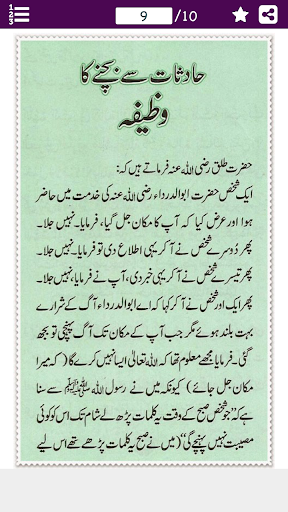 1
2
3
9 /10
حادثات سے بچنے کا
وظیفہ
حضرت طلق رضی اللہ عنہ فرماتے ہیں کہ:
ایک شخص حضرت ابوالدرداء رضی اللہ عنہ کی خدمت میں حاضر
ہوا اور عرض کیا کہ آپ کا مکان جل گیا، فرمایا۔ نہیں جلا۔
پھر دُوسرے شخص نے آ کر یہی اطلاع دی تو فرمایا۔ نہیں جلا۔
پھر تیسرے شخص نے آ کر یہی خبر دی، آپ نے فرمایا۔ نہیں جلا۔
پھر ایک اور شخص نے آ کر کہا کہ اے ابوالدرداء آگ کے شرارے
بہت بلند ہوئے مگر جب آپ کے مکان تک آگ پہنچی تو بجھ
گئی۔ فرمایا مجھے معلوم تھا کہ اللہ تعالیٰ ایسا نہیں کرے گا (کہ میرا
مکان جل جائے) کیونکہ میں نے رسول اللہ ﷺ سے سنا
ہے کہ ”جو شخص صبح کے وقت یہ کلمات پڑھ لے شام تک اس کو کوئی
مصیبت نہیں پہنچے گی“ (میں نے صبح یہ کلمات پڑھے تھے اس لیے